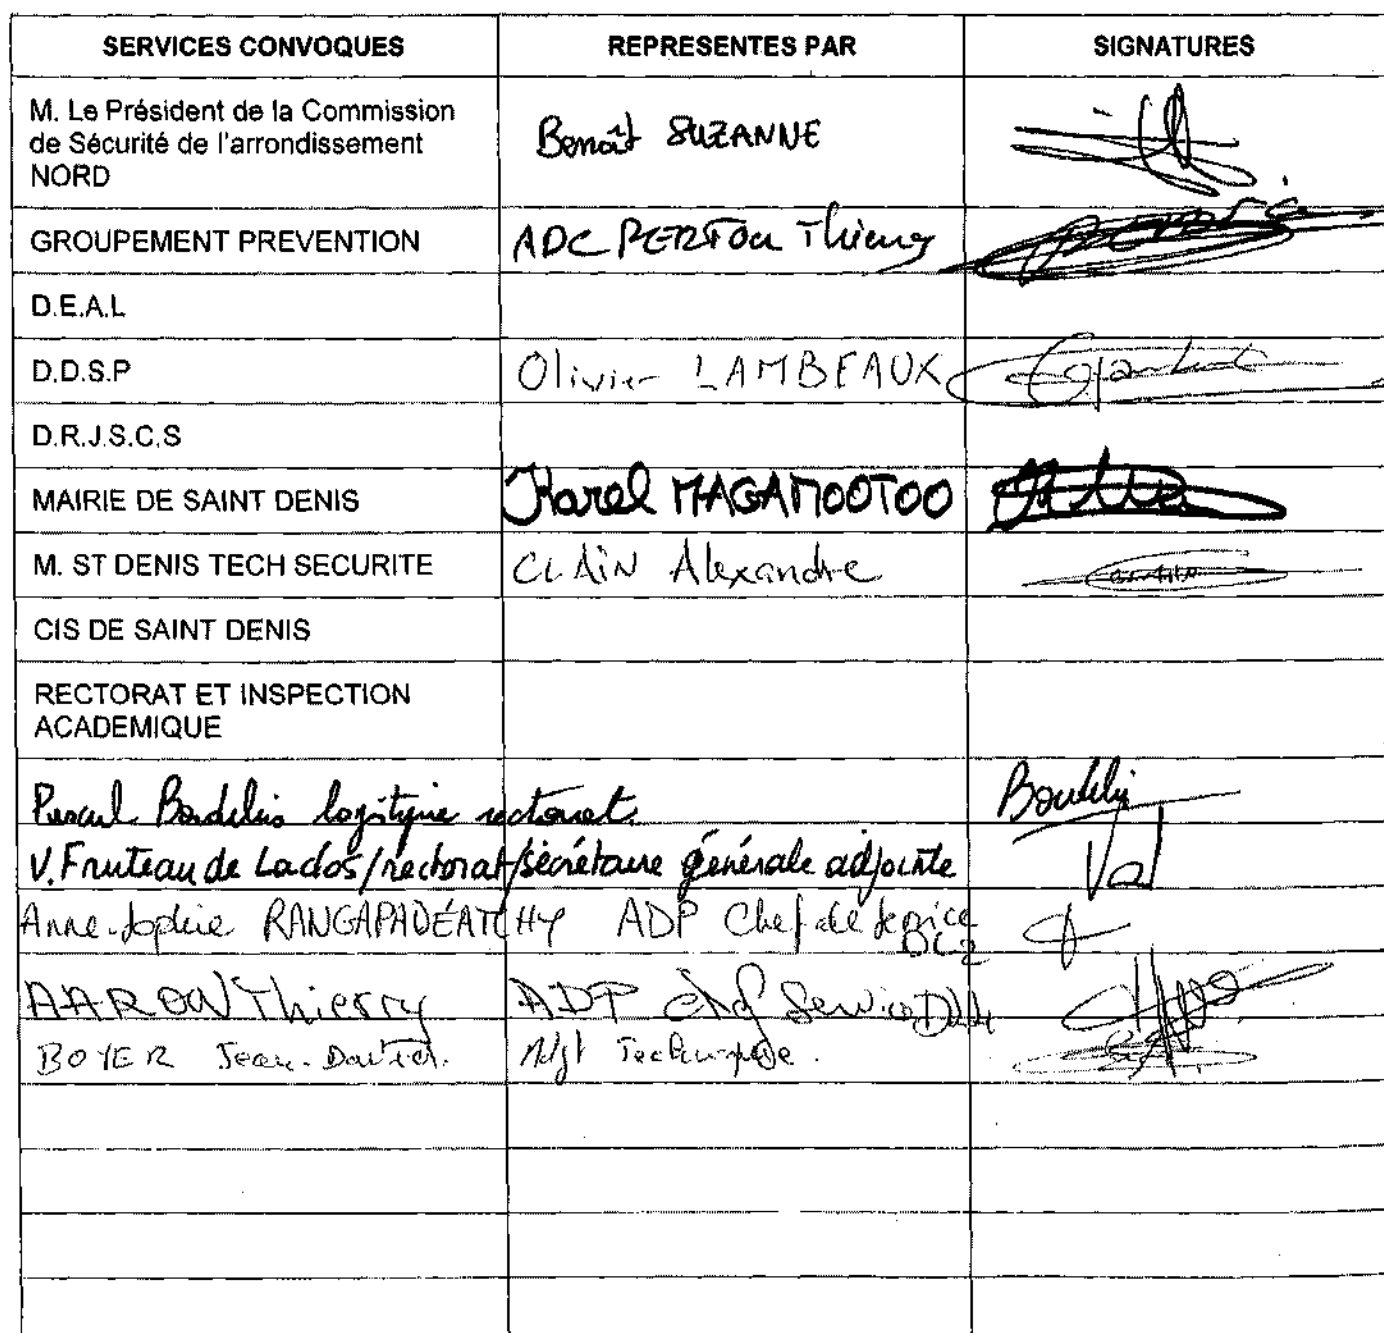 SERVICES CONVOQUES REPRESENTES PAR SIGNATURES
M. Le Président de la Commission
de Sécurité de l'arrondissement
NORD
Benoît SUZANNE
GROUPEMENT PREVENTION ADC Thierry
D.E.A.L
D.D.S.P Olivier LAMBEAUX
D.R.J.S.C.S
MAIRIE DE SAINT DENIS Karel MAGAMOOTOO
M. ST DENIS TECH SECURITE CLAIN Alexandre
CIS DE SAINT DENIS
RECTORAT ET INSPECTION
ACADEMIQUE
logistique rectorat
V. Fruteau de Laclos/rectorat/secrétaire générale adjointe Val
Anne-Sophie RANGAPADÉATCHY ADP Chef de service
AARON Thierry ADP chef Service
BOYER Jean-